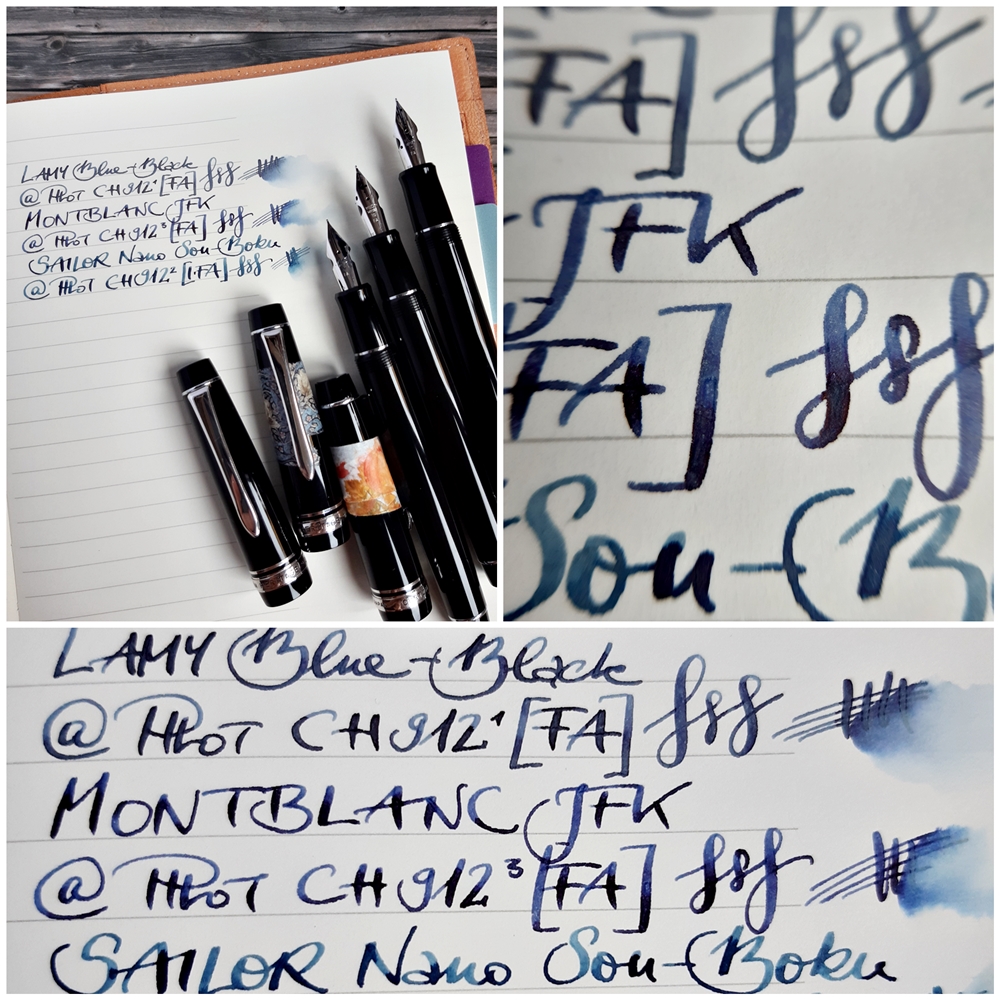 LAMY Blue-Black
@ PILOT CH912¹ [FA] fsf
MONTBLANC JFK
@ PILOT CH912³ [FA] fsf
SAILOR Nano Sou-Boku
@ PILOT CH912² [FA] fsf
FA] fsf
JFK
FA] fsf
Sou-B
LAMY Blue-Black
@ PILOT CH912¹ [FA] fsf
MONTBLANC JFK
@ PILOT CH912³ [FA] fsf
SAILOR Nano Sou-Boku